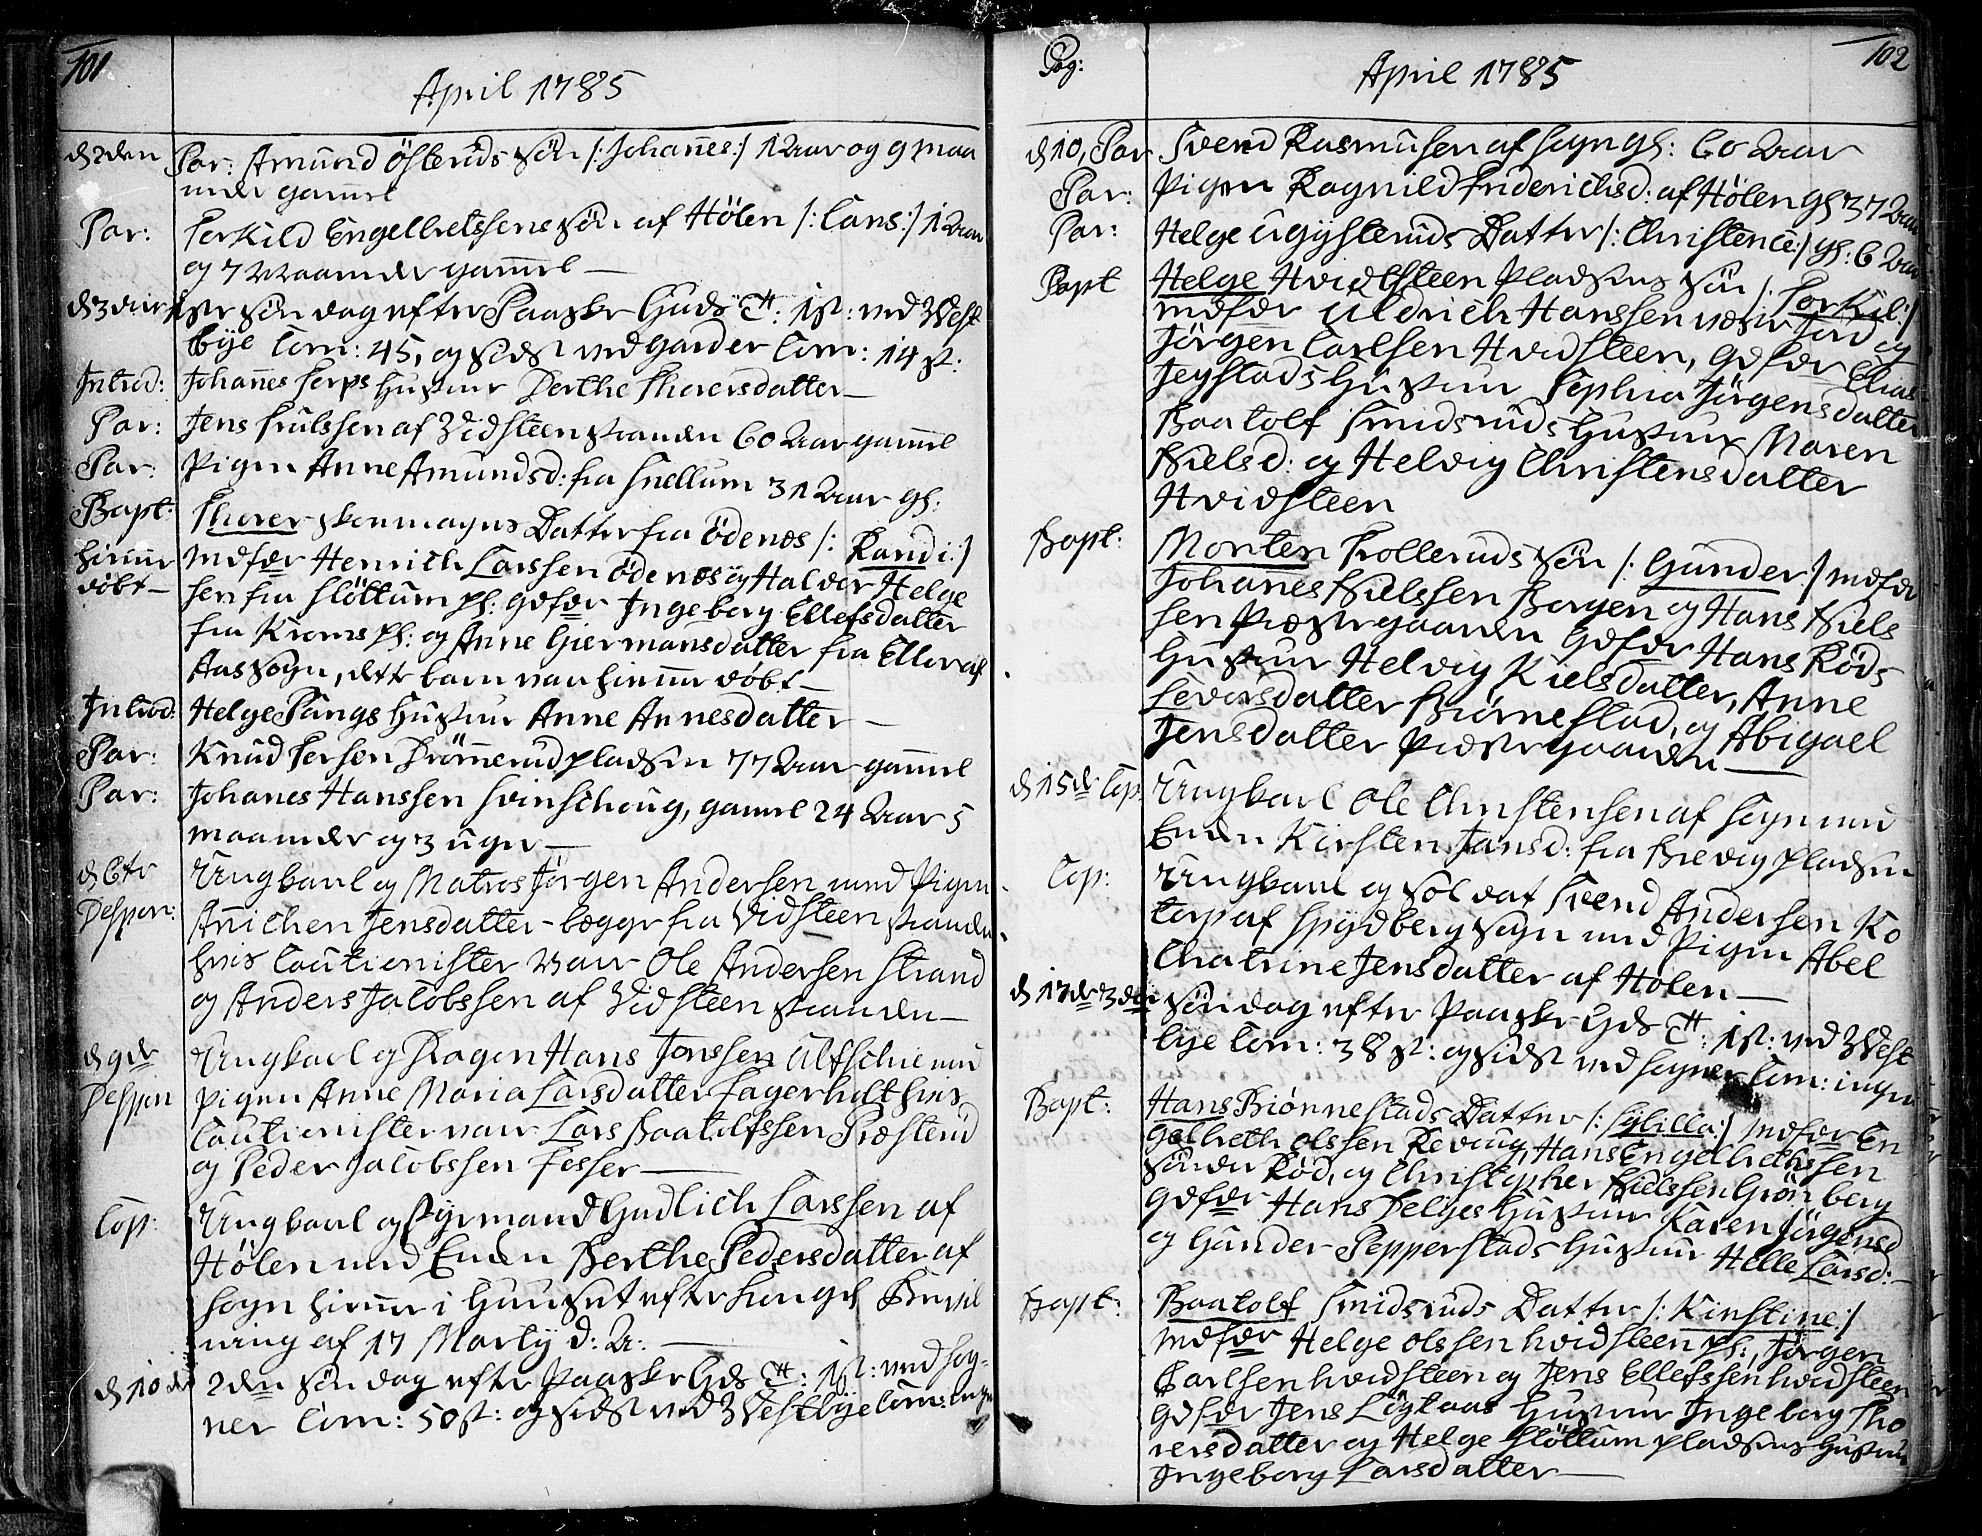 101
April 1785
d 2den Par: Amund Österuds Sön /: Johannes :/ 1 Aar og 9 maa
neder gaml
Par: Terkild Engelbretssens Sön af Hölen /: Lars :/ 1 Aar
og 7 Maaneder gaml
d 3die 1ste Söndag efter Paaske Guds T: 1st: ved West
bye Com: 45, og sidst ved Garder Com: 14 st:
Introd: Johannes Torps Hustrue Berthe Thoresdatter
Par: Jens Truلssen af Vidsteen Stranden 60 Aar gaml
Par: Pigen Anne Amundsd: fra Snellum 31 Aar gl:
Bapt: Thorer Skoemagers Datter fra Ödenæs /: Randi :/
hiemme döbt
Mdfdr Henrich Larssen Ödenæs og Halvor Helge
sen fra Slöttum pl: Qdfdr Ingeborg Ellefsdatter
fra Kroens pl: og Anne Giermansdatter fra Eller af
Aas Sogn, dette barn var hiemme döbt
Introd: Helge Pungs Hustrue Anne Annesdatter
Par: Knud Persen Drömmerud pladsen 77 Aar gaml
Par: Johanes Hanssen Svinschoug, gaml 24 Aar 5
maaneder og 3 uger
d 6te
Despon: Ungkarl og Matros Jörgen Andersen med Pigen
Anichen Jensdatter begge fra Vidsteen Stranden
hvis Cautionister var Ole Andersen Strand
og Anders Jacobssen af Vidsteen Stranden
d 9de
Despon Ungkarl og Dragon Hans Jonssen Ulfschie med
pigen Anne Maria Larsdatter Fagerholt hvis
Cautionister var Lars Baatolfssen Præsterud
og Peder Jacobssen Fosser
Cop: Ungkarl og Styrmand Gudlich Larssen af
Hölen med Enken Berthe Pedersdatter af
Sogn hiemme i Huuset efter Kongl Bevil
ning af 17 Martij d: A:
d 10de 2den Söndag efter Paaske Gds T: 1st: ved Sog-
ner Com: 50 st: og sidst ved Westbye Com: ingen
Pag: 102
April 1785
d 10, Par Svend Rasmusen af Sogn gl: 60 Aar
Par: Pigen Ragnild Friderichsd: af Hölen gl 37 Aar
Par: Helge Ugysteruds Datter /: Christence :/ gl: 6 Aar
Bapt Helge Hvidtsteen Pladsens Sön /: Torkil :/
Mdfdr Uldrich Hanssen Jord og
Jörgen Carlsen Hvidsteen, Qdfdr Elias
Jegstads Hustrue Sophia Jörgensdatter
Baatolf Smidsruds Hustrue Maren
Nielsd: og Helvig Christensdatter
Hvidsteen
Bapt: Morten Trolleruds Sön /: Gunder :/ Mdfdr
Johanes Nielssen Borgen og Hans Niels
sen Præstegaarden Qdfdr Hans Röds
Hustrue Helvig Nielsdatter, Anne
Sevorsdatter Biörnestad, og Abigael
Jensdatter Præstegaarden
d 15de Cop. Ungkarl Ole Christensen af Sogn med
Enken Kirsten Jansd: fra Brevig pladsen
Cop: Ungkarl og Soldat Svend Andersen Ko
torp af Spydberg Sogn med Pigen Abel
Chatrine Jensdatter af Hölen
d 17de 3die Söndag efter Paaske Gds T: 1st: ved West
bye Com: 38 st: og sidst ved Sogner Com: ingen
Bapt: Hans Biönnestads Datter /: Sybilla :/ Mdfdr En
gelbreth Olssen Revoug, Hans Engelbrethssen
Sönder Röd, og Christopher Nielssen Grönberg
Qdfdr Hans Delges Hustrue Karen Jörgensd
og Gunder Pepperstads Hustrue Helle Larsd:
Bapt: Baatolf Smidsruds Datter /: Kirstine :/
Mdfdr Helge Olssen Hvidsteen pl:, Jörgen
Carlsen Hvidsteen og Jens Ellefssen Hvidsteen
Qdfdr Jens Lögtaas Hustrue Ingeborg Tho
resdatter og Helge Slöttum pladsens Hustrue
Ingeborg Larsdatter